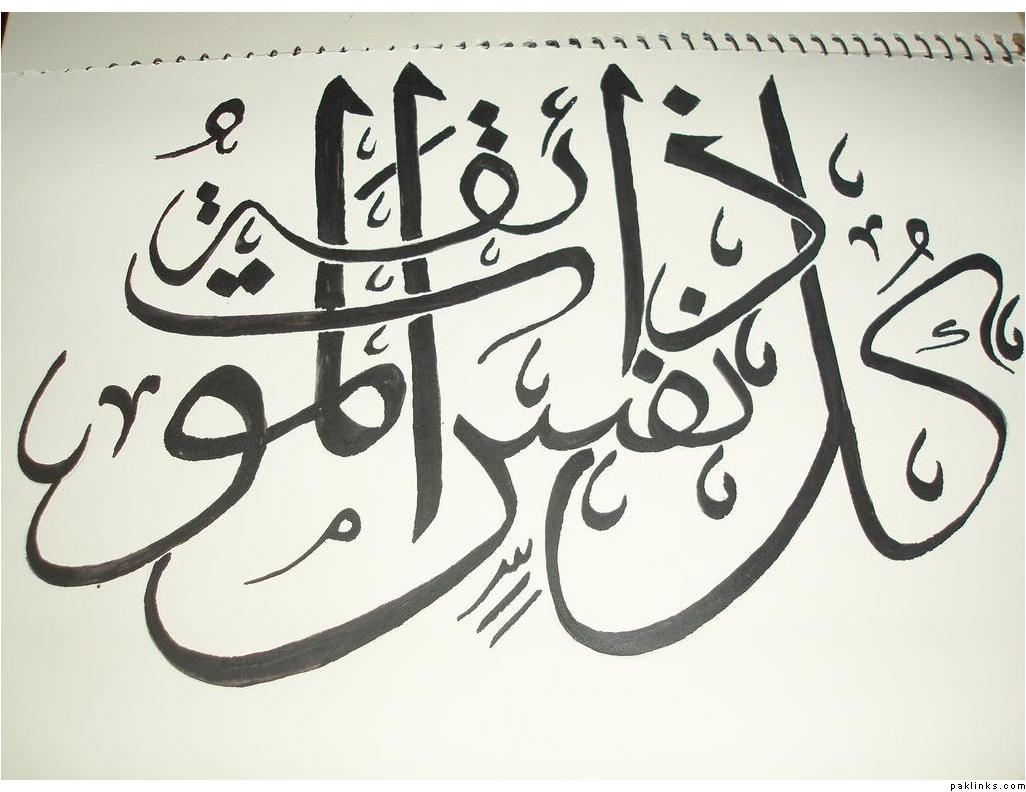 كُل نفسٍ ذائقةُ الموت
paklinks.com